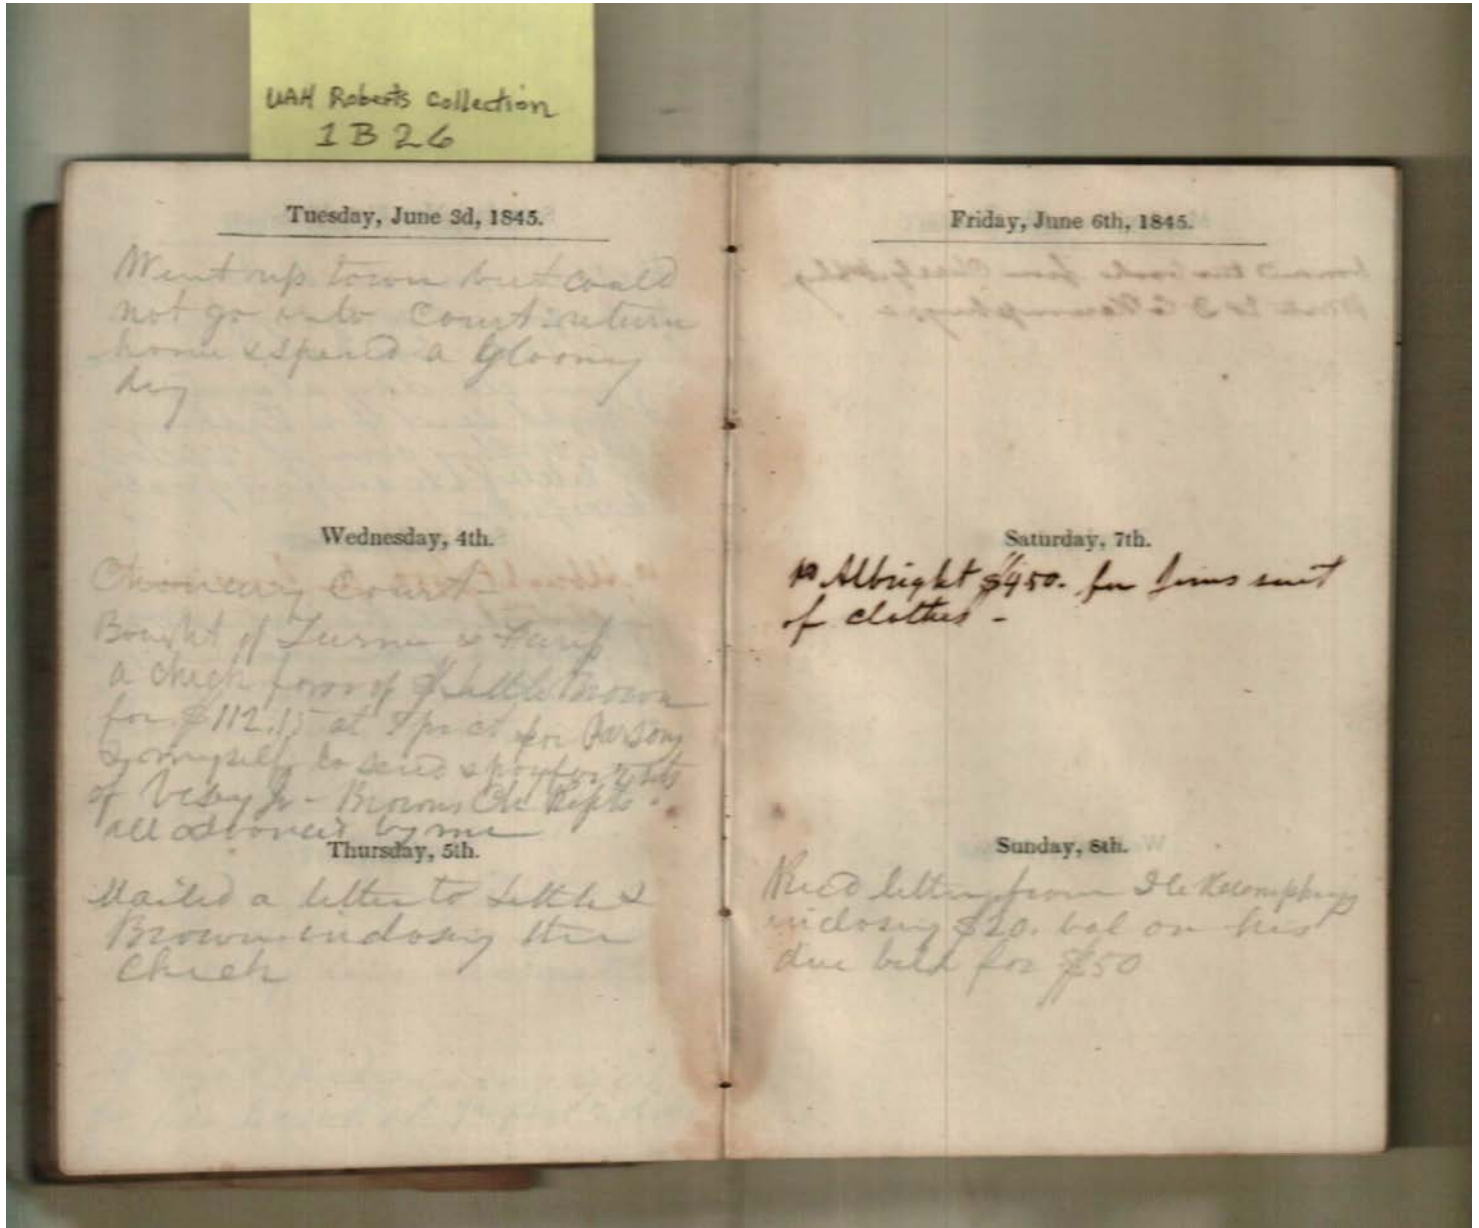 UAH Roberts Collection
1 B 26
Tuesday, June 3d, 1845.
Went up town but could
not go into Court return
home & spend a gloomy
day
Wednesday, 4th.
Chancery Court
Bought of Turner &
a check
for $112.15 at for Parsons
& myself to send & pay for
of Vesey Jr - Browns Ch Repts -
all advanced by me
Thursday, 5th.
Mailed a letter to Little &
Brown inclosing the
check
Friday, June 6th, 1845.
Saturday, 7th.
Pd Albright $450. for suit
of clothes -
Sunday, 8th.
Recd letter from Humphreys
inclosing $20. bal on his
due bill for $50